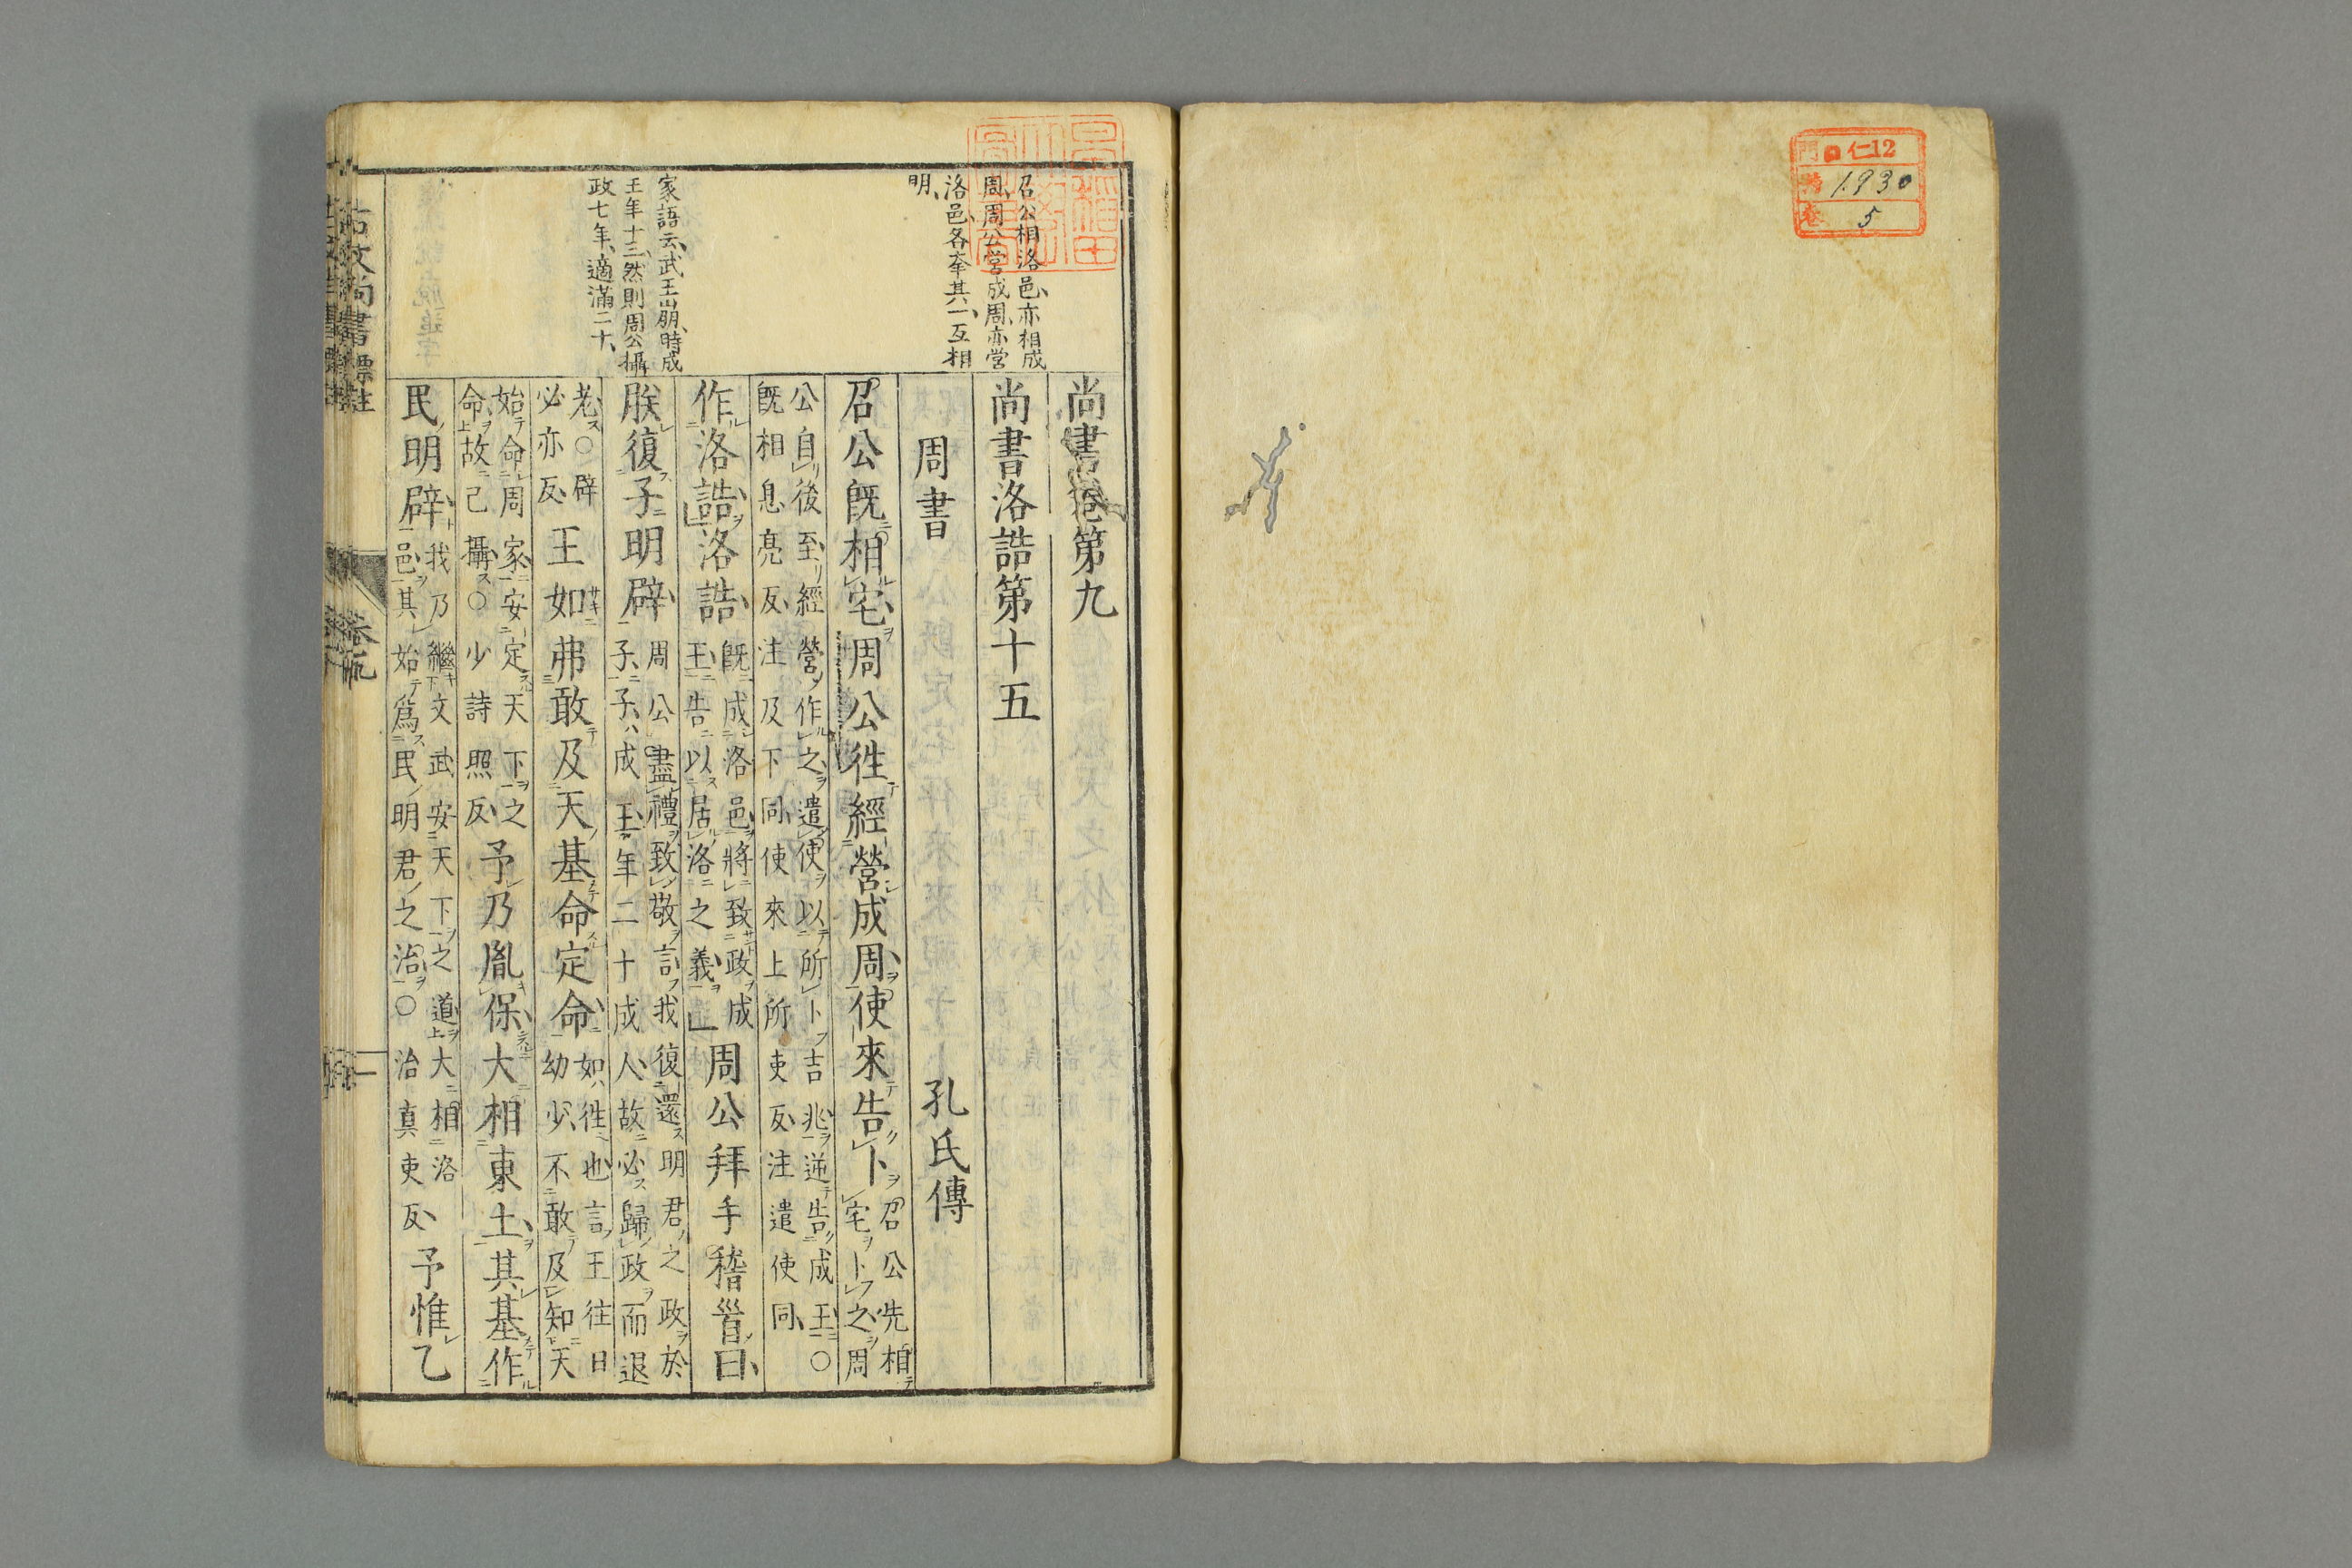 門 口仁12
號 1930
卷 5
尚書卷第九
尚書洛誥第十五
周書 孔氏傳
召公既相宅周公徃經營成周使來告卜 召公先相
宅卜之周
公自後至經營作之遣使以所卜吉兆逆告成王〇
既相息亮反注及下同使來上所吏反注遣使同
作洛誥洛誥 既成洛邑將致政成
王告以居洛之義 周公拜手稽首曰
朕復子明辟 周公盡禮致敬言我復還明君之政於
子子成王年二十成人故必歸政而退
老〇辟
必亦反 王如弗敢及天基命定命 如徃也言王往日
幼少不敢及知天
始命周家安定天下之
命故己攝〇少詩照反 予乃胤保大相東土其基作
民明辟 我乃繼文武安天下之道大相洛
邑其始爲民明君之治〇治真吏反 予惟乙
召公相洛邑亦相成
周周公營成周亦営
洛邑各夲其一互相
明
家語云武王崩時成
王年十三然則周公攝
政七年適滿二十
古文尚書標註 卷九 一